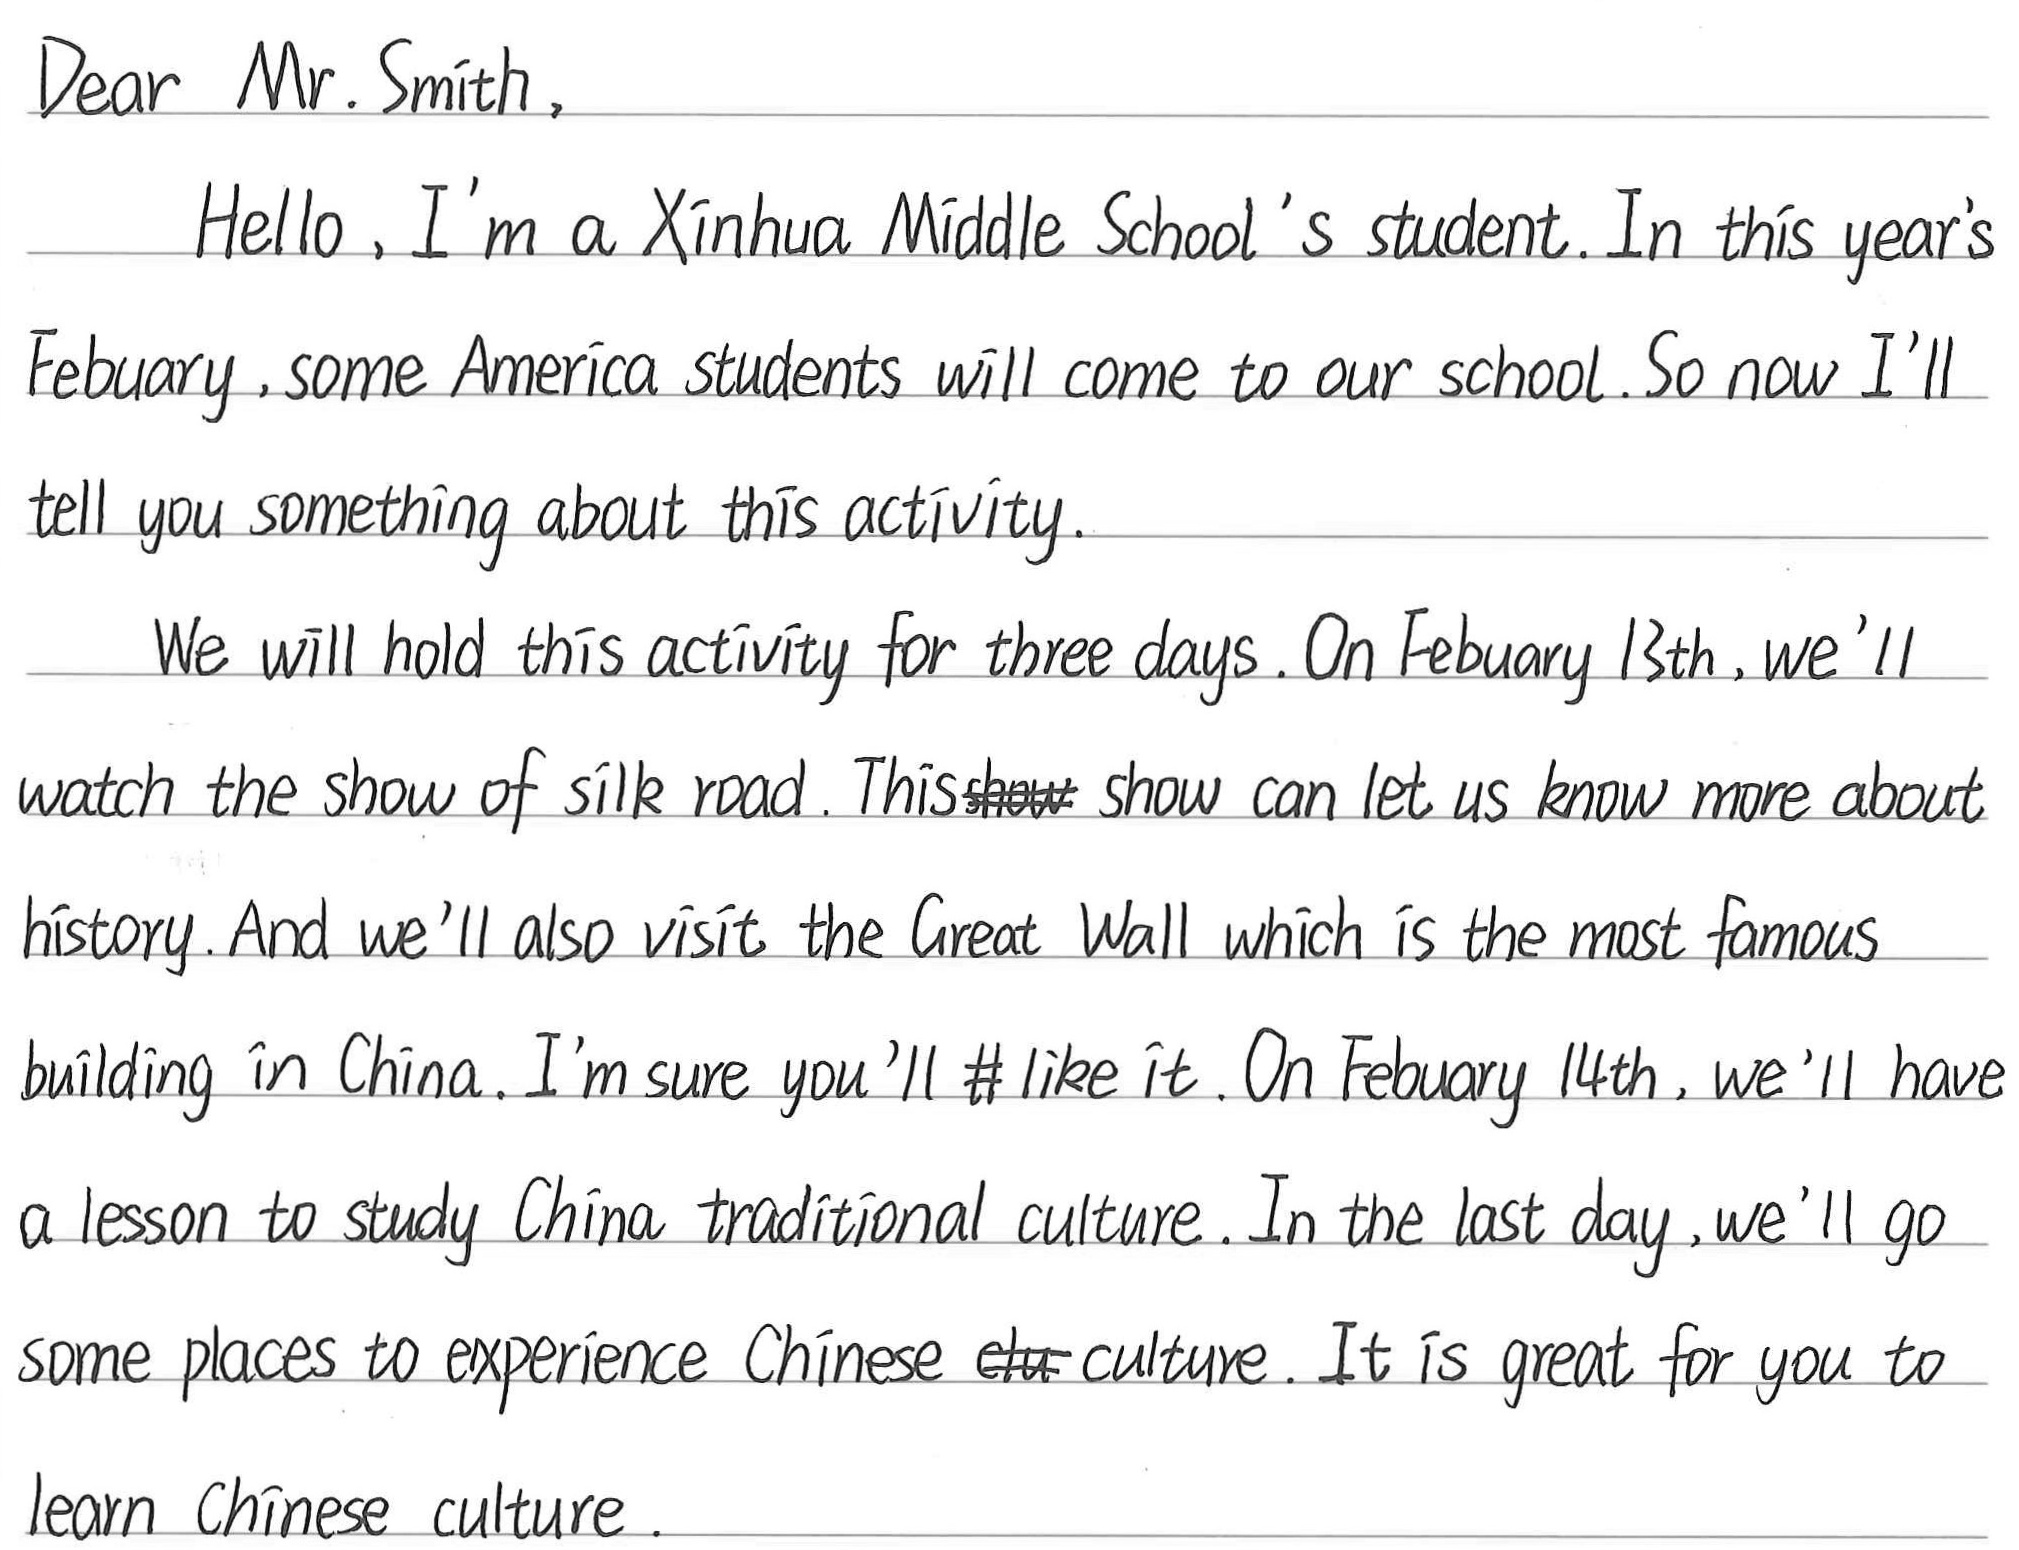 Dear Mr. Smith,
Hello, I'm a Xinhua Middle School's student. In this year's
Febuary, some America students will come to our school. So now I'll
tell you something about this activity.
We will hold this activity for three days. On Febuary 13th, we'll
watch the show of silk road. This show show can let us know more about
history. And we'll also visit the Great Wall which is the most famous
building in China. I'm sure you'll like it. On Febuary 14th, we'll have
a lesson to study China traditional culture. In the last day, we'll go
some places to experience Chinese culture. It is great for you to
learn Chinese culture.